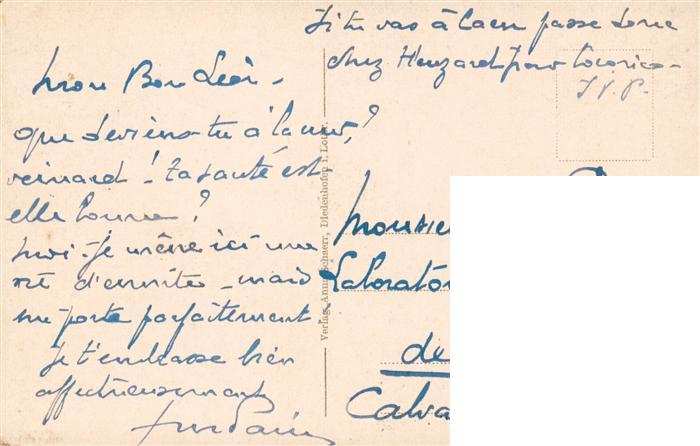 Si tu vas à Caen passe donc
chez Huzard pour Cocorico -
S.V.P.
Mon Bon Léon -
que deviens-tu à la mer,?
veinard ! ta santé est
elle bonne ?
moi - je mène ici une
vie d'ermite - mais
me porte parfaitement
Je t'embrasse bien
affectueusement
Verlag Anna Schaerr, Diedenhofen i. Lothr.
Monsie
Laborato
de
Calva